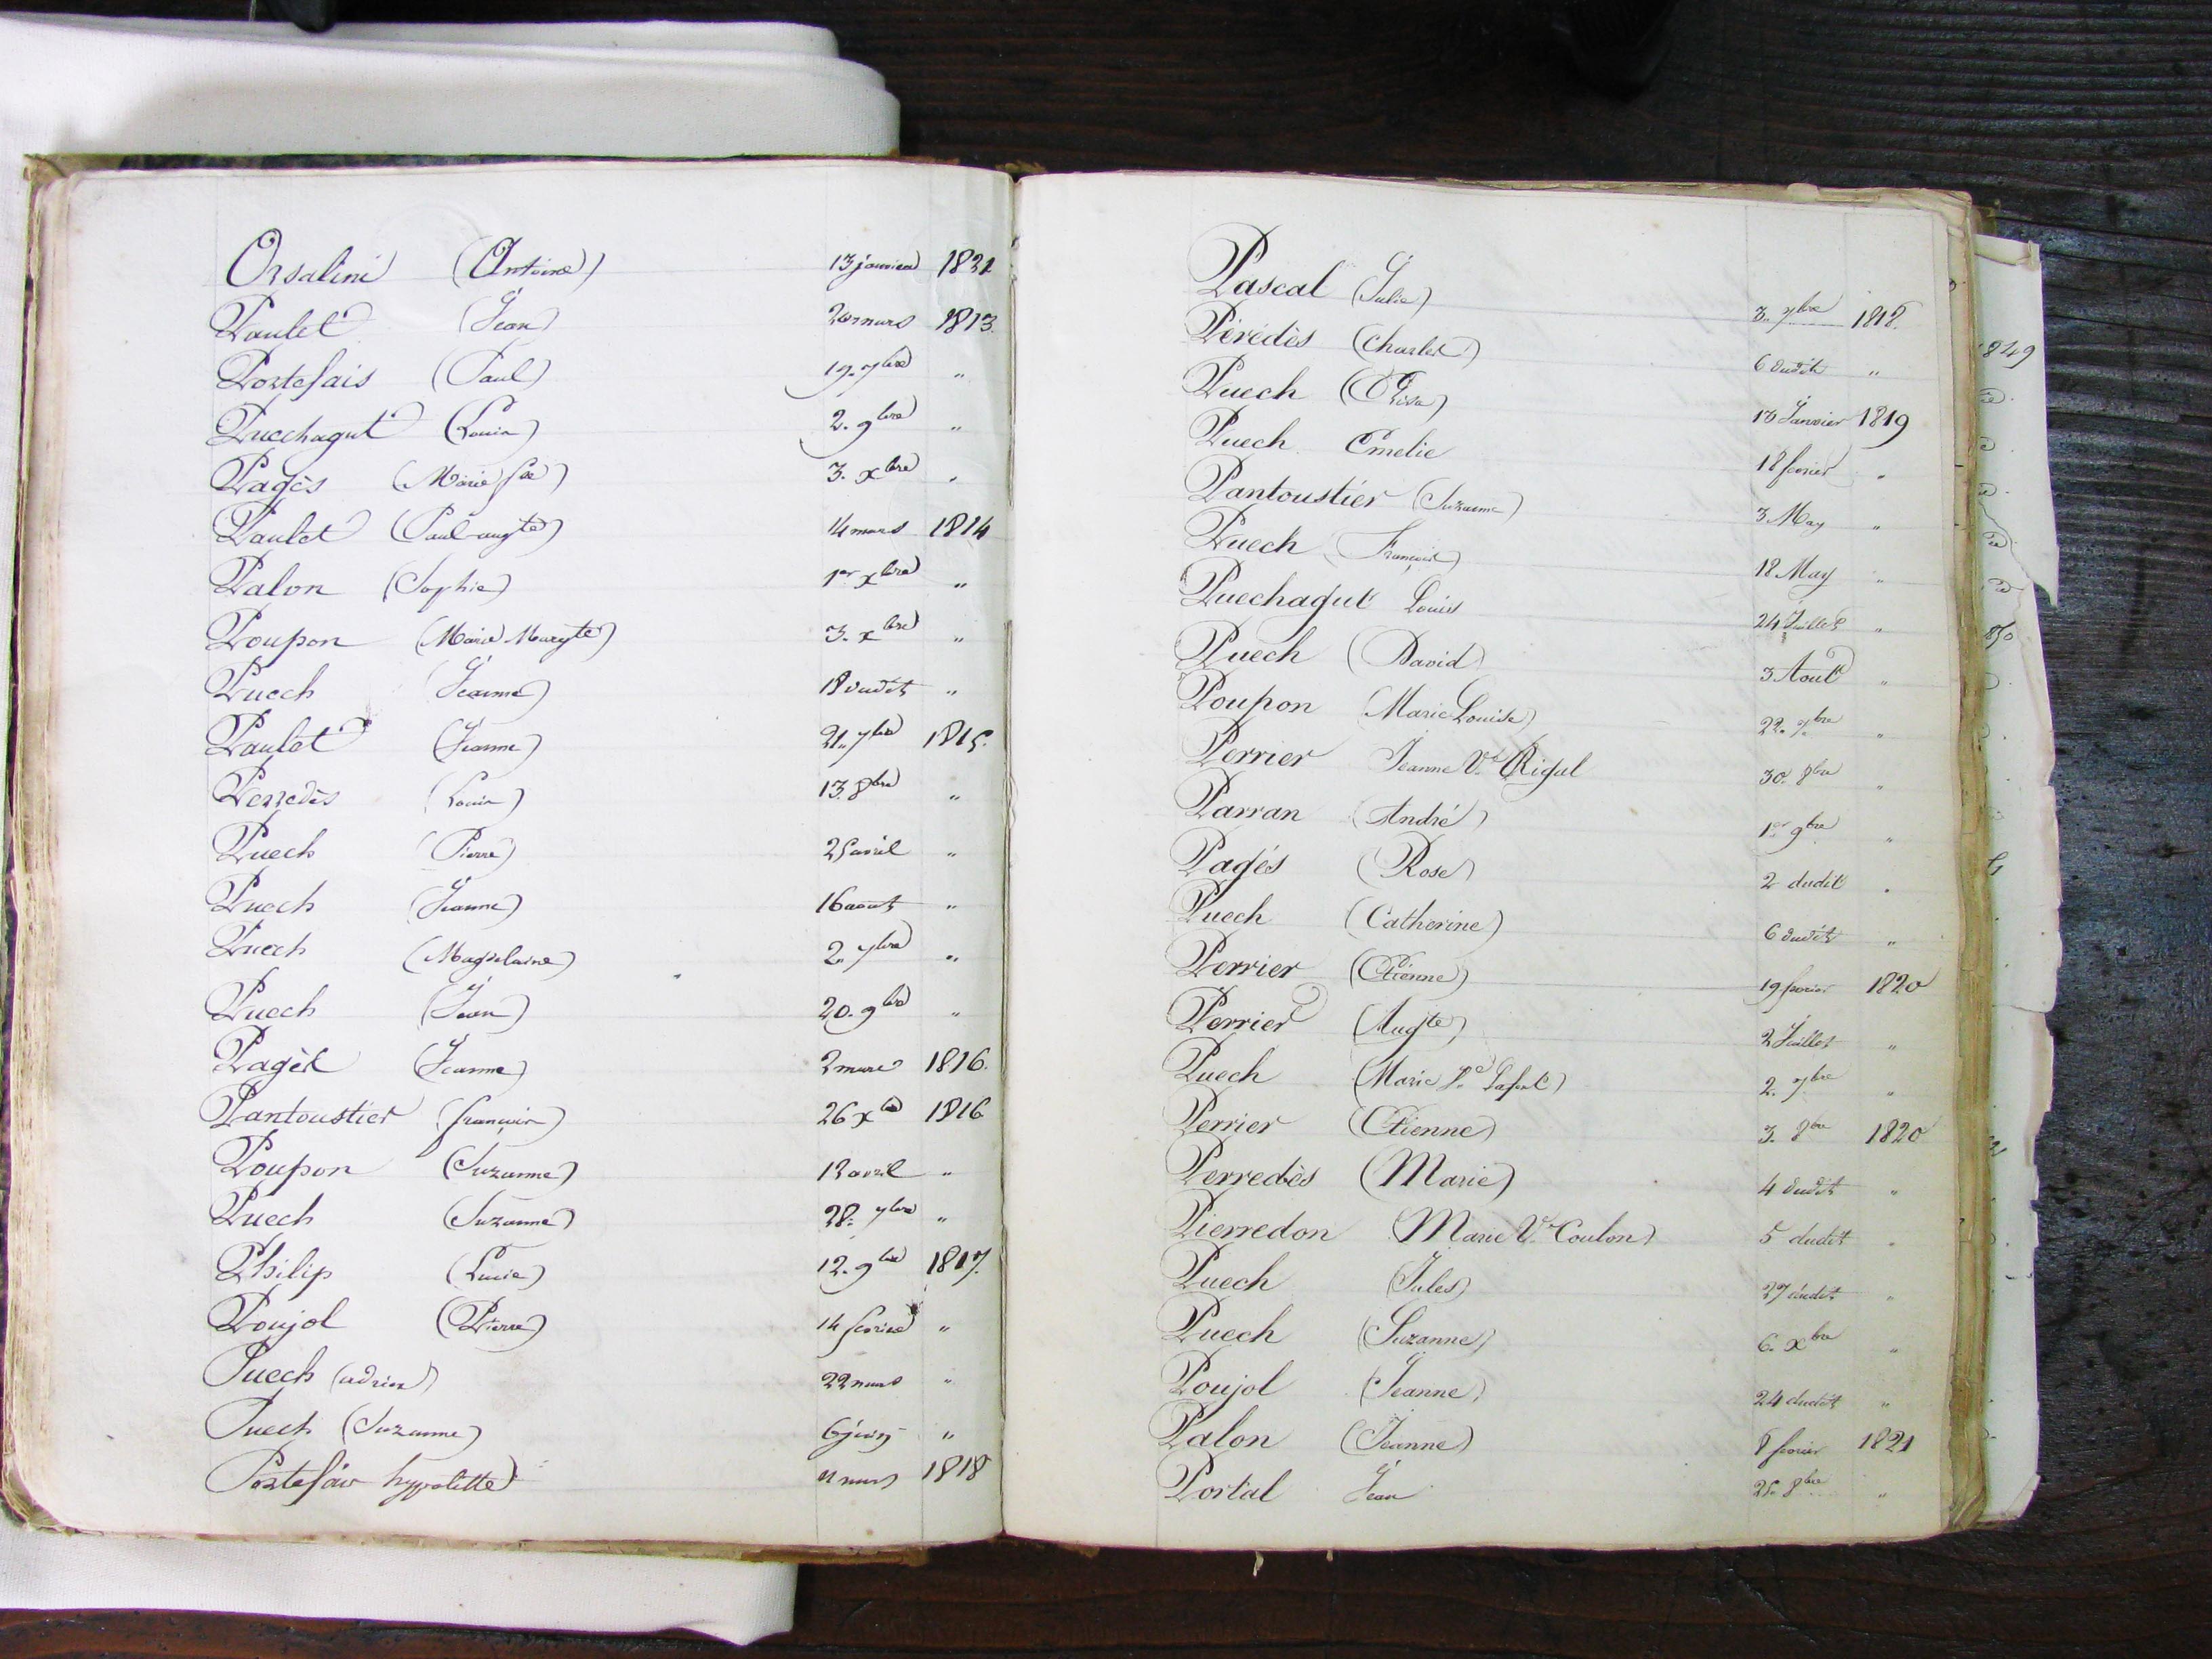 Orsalini (Antoine) 13 janvier 1821
Paulet (Jean) 20 mars 1813.
Portefais (Paul) 19. 7bre "
Puechagut (Louis) 2. 9bre "
Pagès (Marie fse) 3. xbre "
Paulet (Paul augte) 14 mars 1814
Palon (Sophie) 1er xbre "
Poupon (Marie Margte) 3. xbre "
Puech (Jeanne) 18 dudit "
Paulet (Jeanne) 21. 7bre 1815.
Perredès (Louis) 13. 8bre "
Puech (Pierre) 25 avril "
Puech (Jeanne) 16 aout "
Puech (Magdelaine) 2. 7bre "
Puech (Jean) 20. 9bre "
Pagès (Jeanne) 2 mars 1816.
Pantoustier (françois) 26 xbre 1816
Poupon (Suzanne) 13 avril "
Puech (Suzanne) 28. 7bre "
Philip (Lucie) 12. 9bre 1817.
Poujol (Pierre) 14 fevrier "
Puech (adrien) 22 mars "
Puech (Suzanne) 6 juin "
Portefaix hyppolitte 11 mars 1818
Pascal (Julie) 3. 7bre 1818.
Pérédès (Charles) 6 dudit "
Puech (Elisa) 13 Janvier 1819
Puech Emelie 18 fevrier "
Pantoustier (Suzanne) 3 May "
Puech (François) 18 May "
Puechagut Louis 24 Juillet "
Puech (David) 3 Aout "
Poupon (Marie Louise) 22. 7bre "
Perrier Jeanne Ve Rigal 30. 8bre "
Parran (André) 1er 9bre "
Pagès (Rose) 2 dudit "
Puech (Catherine) 6 dudit "
Perrier (Etienne) 19 fevrier 1820
Perrier (Augte) 2 Juillet "
Puech (Marie Ve Lafont) 2. 7bre "
Perrier (Etienne) 3. 8bre 1820
Perredès (Marie) 4 dudit "
Pierredon (Marie Ve Coulon) 5 dudit "
Puech (Jules) 27 dudit "
Puech (Suzanne) 6. xbre "
Poujol (Jeanne) 24 dudit "
Palon (Jeanne) 8 fevrier 1821
Portal Jean 25. 8bre "
1849